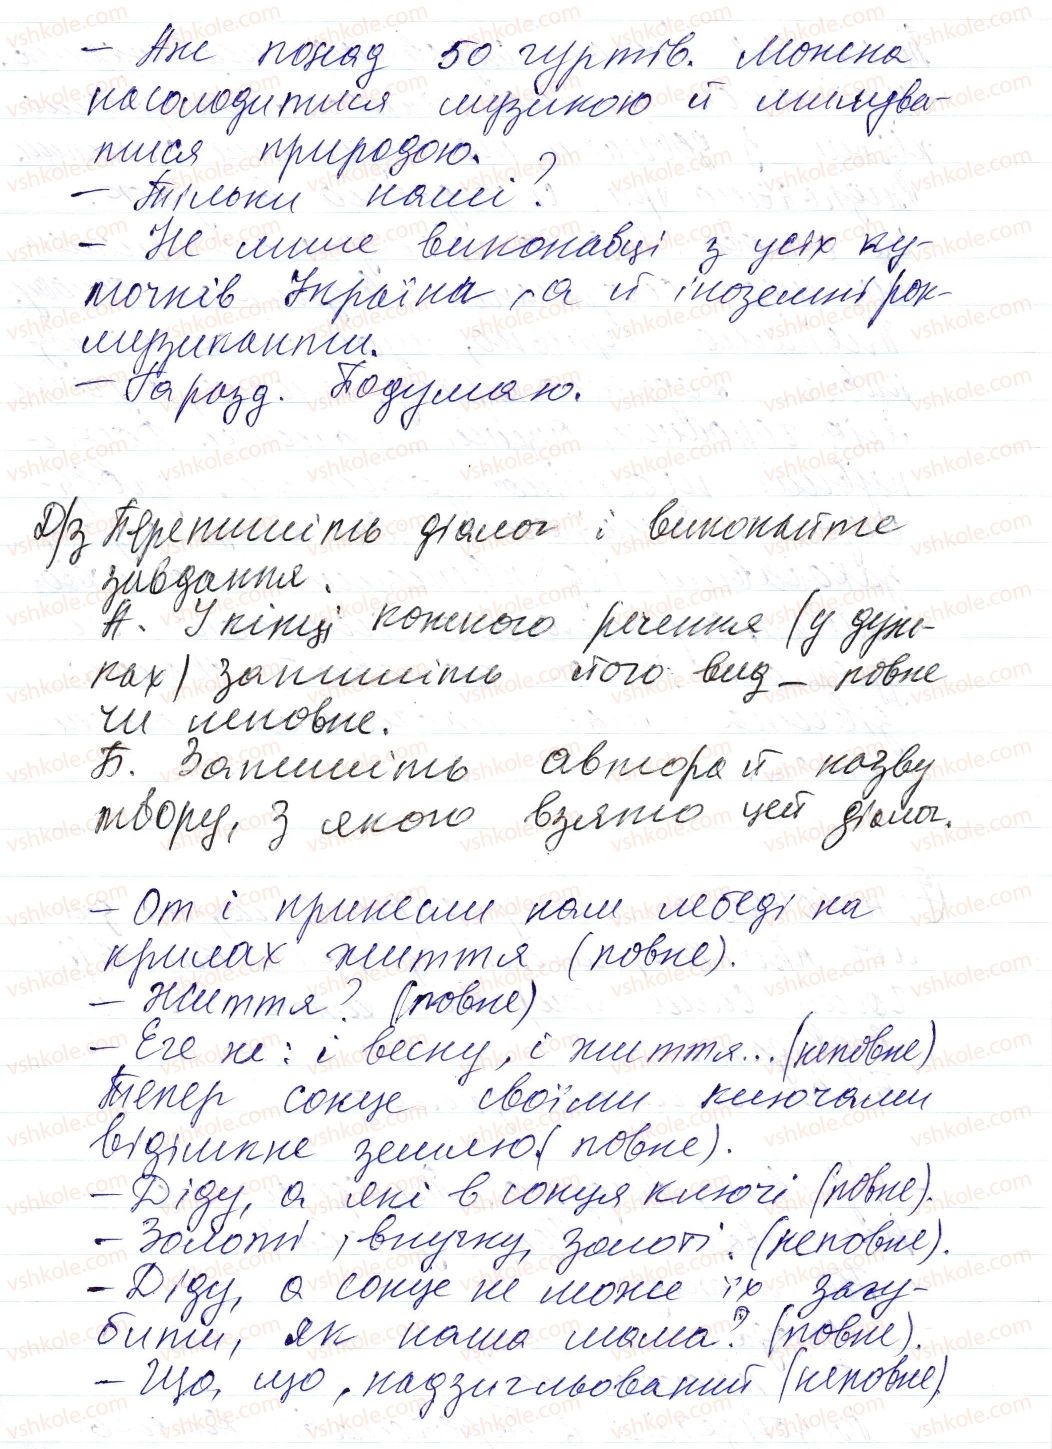 – Аж понад 50 гуртів. Можна
насолодитися музикою й милува-
тися природою.
– Тільки наші?
– Не лише виконавці з усіх ку-
точків Україна, а й іноземні рок-
музиканти.
– Гаразд. Подумаю.
Д/з Перепишіть діалог і виконайте
завдання.
А. У кінці кожного речення (у дуж-
ках) запишіть його вид – повне
чи неповне.
Б. Запишіть автора й назву
твору, з якого взято цей діалог.
– От і принесли нам лебеді на
крилах життя (повне).
– Життя? (повне)
– Еге ж: і весну, і життя... (неповне)
Тепер сонце своїми ключами
відімкне землю. (повне).
– Діду, а які в сонця ключі (повне).
– Золоті, внучку, золоті. (неповне).
– Діду, а сонце не може їх загу-
бити, як наша мама? (повне).
– Що, що, надзигльований (неповне)